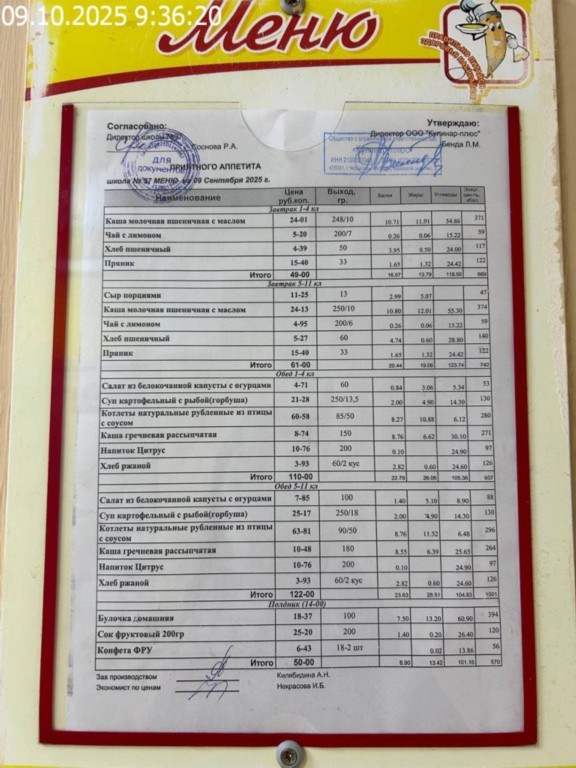 09.10.2025 9:36:20
Меню
ПРАВИЛЬНО
Согласовано:
Утверждаю:
Директор школы №
Директор ООО "Кулинар-плюс"
Соснова Р.А.
Бенда Л.М.
Для документов
ПРИЯТНОГО АППЕТИТА
школа № 37 МЕНЮ на 09 Сентября 2025 г.
Наименование Цена руб.коп. Выход, гр. Белки Жиры Углеводы
Завтрак 1-4 кл
Каша молочная пшеничная с маслом 24-01 248/10 10.71 11.91 54.86 371
Чай с лимоном 5-20 200/7 0.26 0.06 15.22 59
Хлеб пшеничный 4-39 50 3.95 0.50 24.00 117
Пряник 15-40 33 1.65 1.32 24.42 122
Итого 49-00 16.57 13.79 118.50 669
Завтрак 5-11 кл
Сыр порциями 11-25 13 2.99 3.07 47
Каша молочная пшеничная с маслом 24-13 250/10 10.80 12.01 55.30 374
Чай с лимоном 4-95 200/6 0.26 0.06 15.22 59
Хлеб пшеничный 5-27 60 4.74 0.60 28.80 140
Пряник 15-40 33 1.65 1.32 24.42 122
Итого 61-00 20.44 123.74 742
Обед 1-4 кл
Салат из белокочанной капусты с огурцами 4-71 60 0.84 3.06 5.34 53
Суп картофельный с рыбой(горбуша) 21-28 250/13,5 2.00 4.90 14.30 130
Котлеты натуральные рубленные из птицы с соусом 60-58 85/50 8.27 10.88 6.12 280
Каша гречневая рассыпчатая 8-74 150 8.76 6.62 30.10 271
Напиток Цитрус 10-76 200 0.10 24.90 97
Хлеб ржаной 3-93 60/2 кус 2.82 0.60 24.60 126
Итого 110-00 22.79 26.06 105.36 957
Обед 5-11 кл
Салат из белокочанной капусты с огурцами 7-85 100 1.40 5.10 8.90 88
Суп картофельный с рыбой(горбуша) 25-17 250/18 2.00 4.90 14.30 130
Котлеты натуральные рубленные из птицы с соусом 63-81 90/50 8.76 11.52 6.48 296
Каша гречневая рассыпчатая 10-48 180 8.55 6.39 25.65 264
Напиток Цитрус 10-76 200 0.10 24.90 97
Хлеб ржаной 3-93 60/2 кус 2.82 0.60 24.60 126
Итого 122-00 23.63 28.51 104.83 1001
Полдник (14-00)
Булочка домашняя 18-37 100 7.50 13.20 60.90 394
Сок фруктовый 200гр 25-20 200 1.40 0.20 26.40 120
Конфета ФРУ 6-43 18-2 шт 0.02 13.86 56
Итого 50-00 8.90 13.42 101.16 570
Зав производством Килябидина А.Н.
Экономист по ценам Некрасова И.Б.